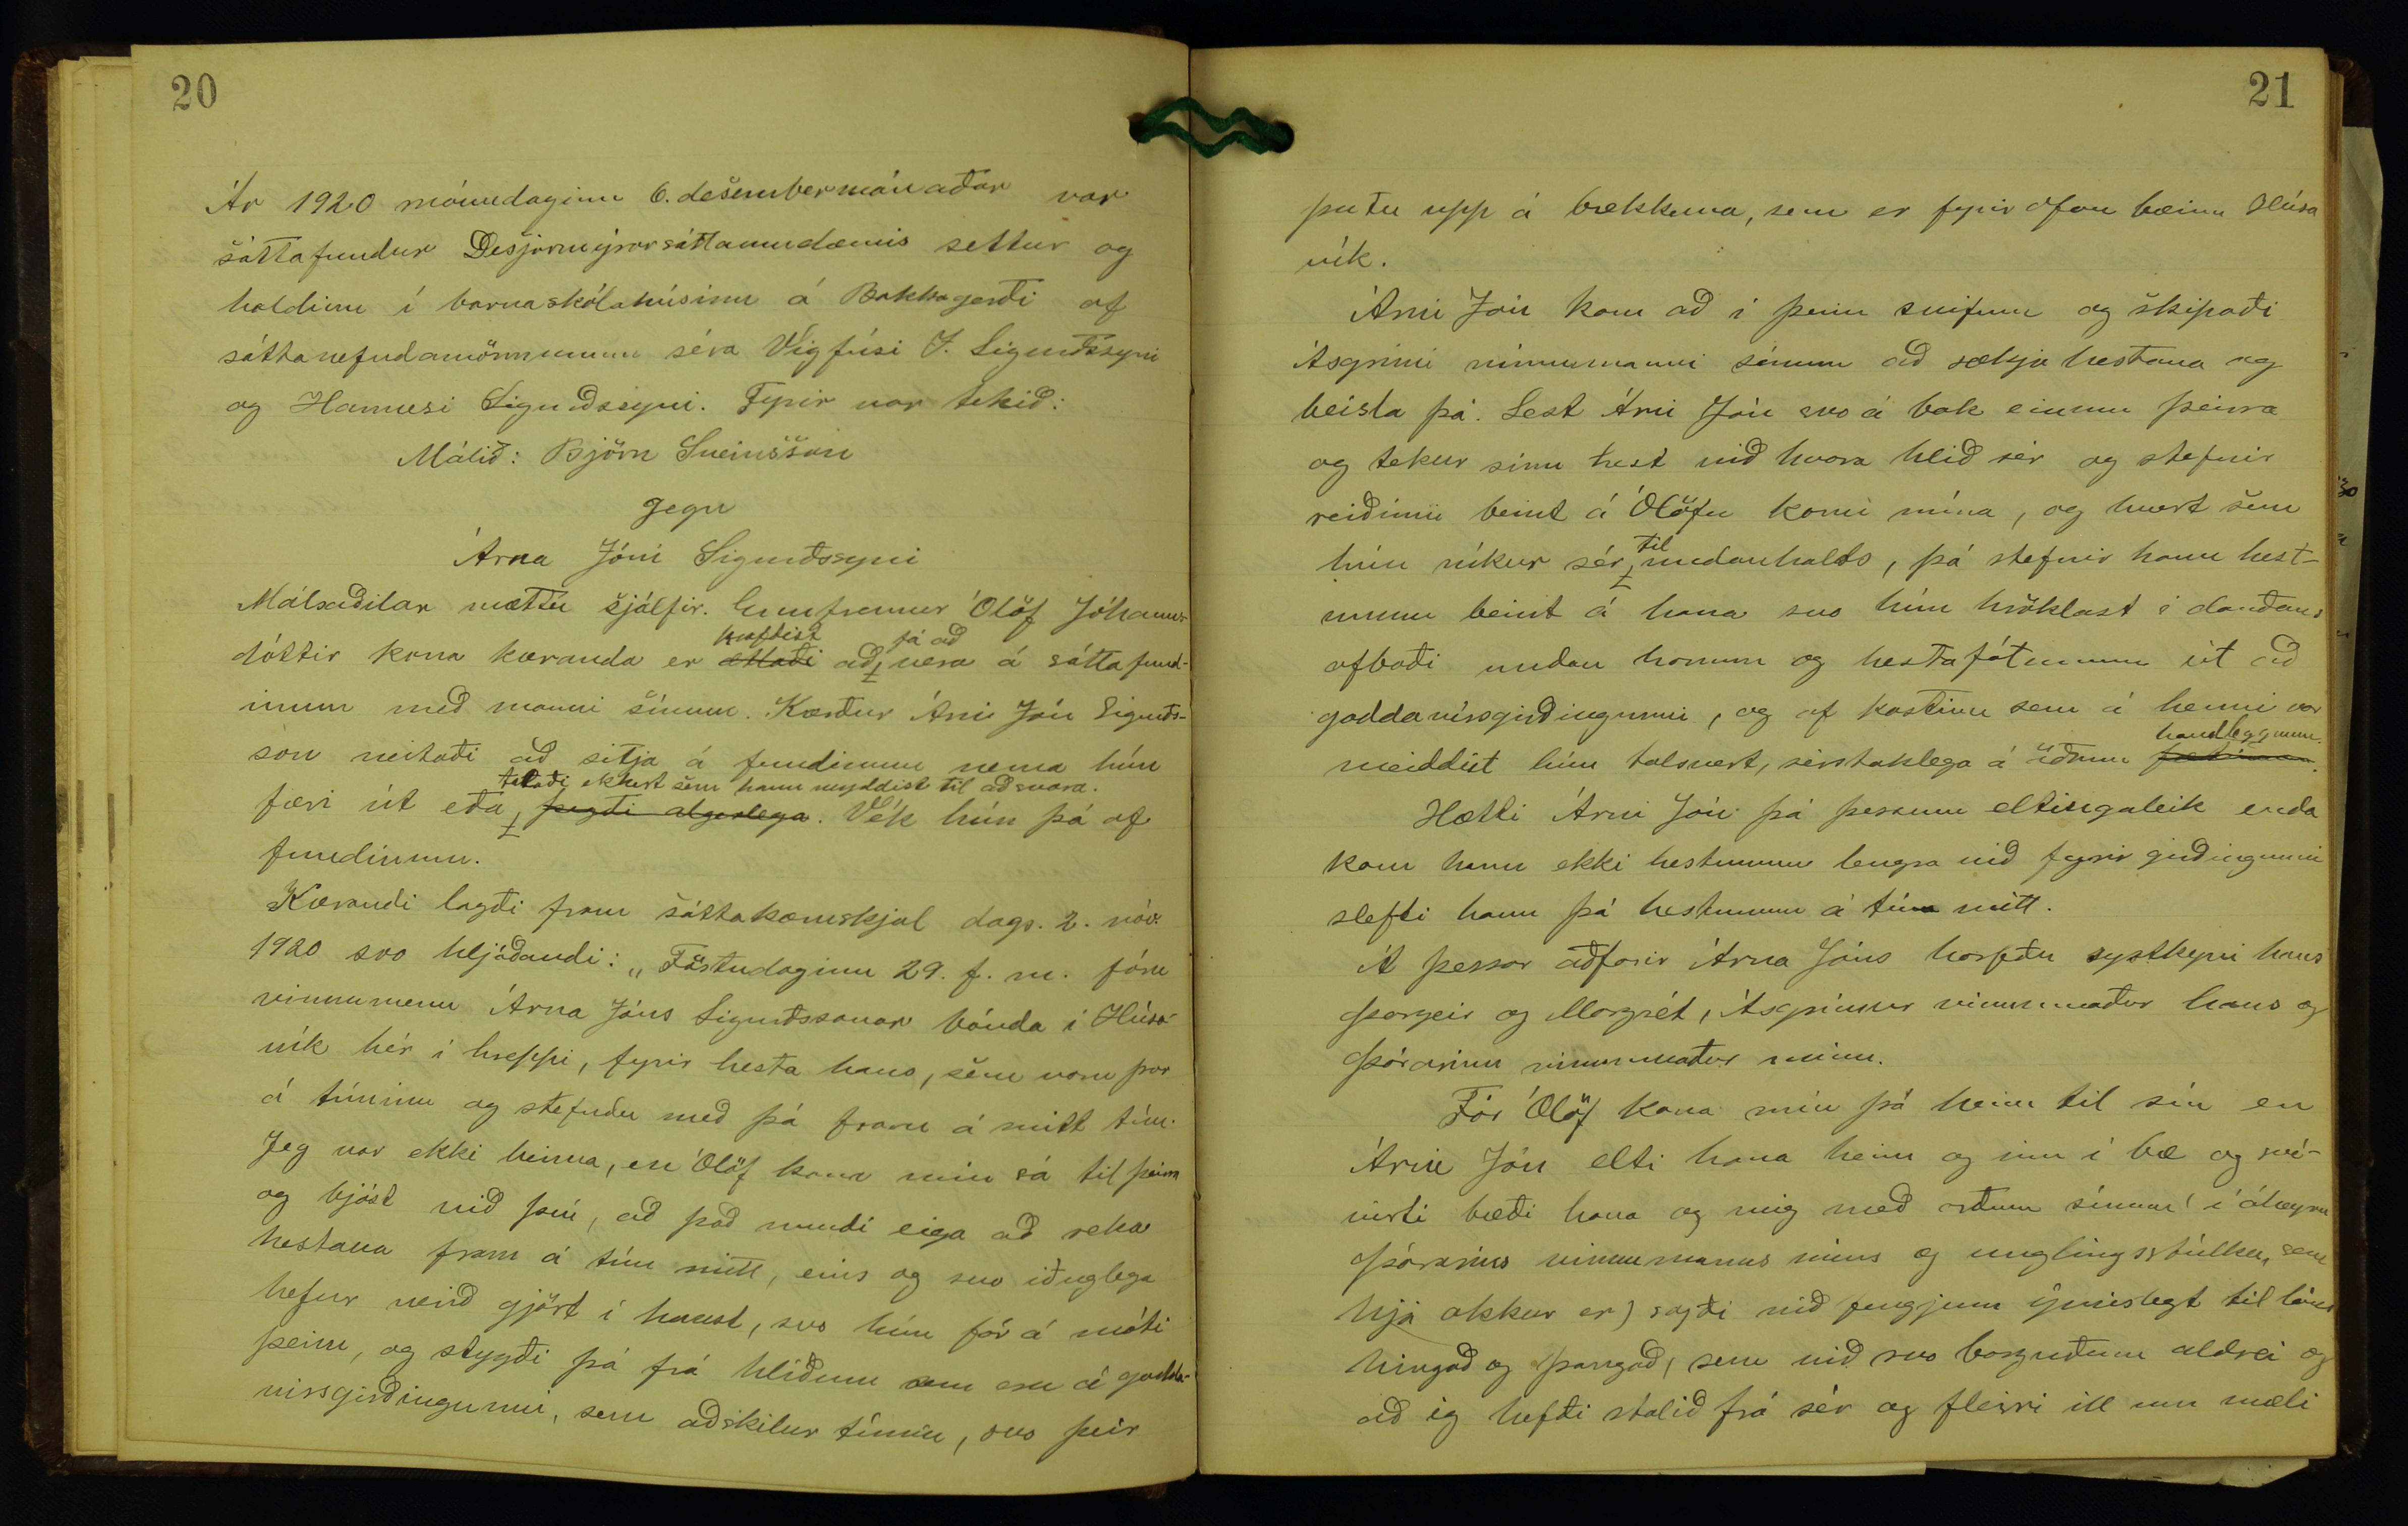 20
Ár 1920 mánudaginn 6. desembermánaðar var
sáttafundur Desjarmýrarsáttaumdæmis settur og
haldinn í barnaskólahúsinu á Bakkagerði af
sáttanefndamönnunum séra Vigfúsi I. Sigurðssyni
og Hannesi Sigurðssyni. Fyrir var tekið:
Málið: Björn Sveinsson
gegn
Árna Jóni Sigurðssyni
Málsaðilar mættu sjálfir. Ennfremur Ólöf Jóhanns-
krafðist fá að
dóttir kona kæranda er ætlaði að vera á sáttafund-
inum með manni sínum. Kærður Árni Jón Sigurðs-
son neitaði að sitja á fundinum nema hún
talaði ekkert sem hann neyddist til að svara.
færi út eða þegði algerlega. Vék hún þá af
fundinum.
Kærandi lagði fram sáttakæruskjal dags. 2. nóv.
1920 svo hljóðandi: „Föstudaginn 29. f. m. fóru
vinnumenn Árna Jóns Sigurðssonar bónda í Húsa-
vík hér í hreppi, fyrir hesta hans, sem voru þar
á túninu og stefndu með þá fram á mitt tún.
Jeg var ekki heima, en Ólöf kona mín sá til þeirra
og bjóst við því, að það mundi eiga að reka
hestana fram á tún mitt, eins og svo iðuglega
hefur verið gjört í haust, svo hún fór á móti
þeim, og stygði þá frá hliðunu sem eru á gadda-
vírsgirðingunni, sem aðskilur túnin, svo þeir
21
þutu upp á brekkuna, sem er fyrir ofan bæinn Húsa
vík.
Árni Jón kom að í þeim svifum og skipaði
Ásgrími vinnumanni sínum að sækja hestana og
beisla þá. Sest Árni Jón svo á bak einum þeirra
og tekur sinn hest við hvora hlið sér og stefnir
reiðinni beint á Ólöfu konu mína, og hvert sem
til
hún víkur sér undanhalds, þá stefnir hann hest-
unum beint á hana svo hún hröklast í dauðans
ofboði undan honum og hestafótunum út að
gaddavírsgirðingunni, og af kastinu sem á henni var
handleggnum.
meiddist hún talsvert, sérstaklega á öðrum fætinum.
Hætti Árni Jón þá þessum eltingaleik enda
kom hann ekki hestunum lengra við fyrir girðingunni
slefti hann þá hestunum á tún mitt.
Á þessar aðfarir Árna Jóns horfðu systkyni hans
Þorgeir og Margrét, Ásgrímur vinnumaður hans og
Þórarinn vinnumaður minn.
Fór Ólöf kona mín þá heim til sín en
Árni Jón elti hana heim og inn í bæ og sví-
virti bæði hana og mig með orðum sínum í áheyrn
Þórarins vinnumanns míns og unglingsstúlku, sem
hjá okkur er) sagði við fengjum ýmislegt til láns
hingað og þangað, sem við svo borguðum aldrei og
að ég hefði stolið frá sér og fleiri ill um mæli